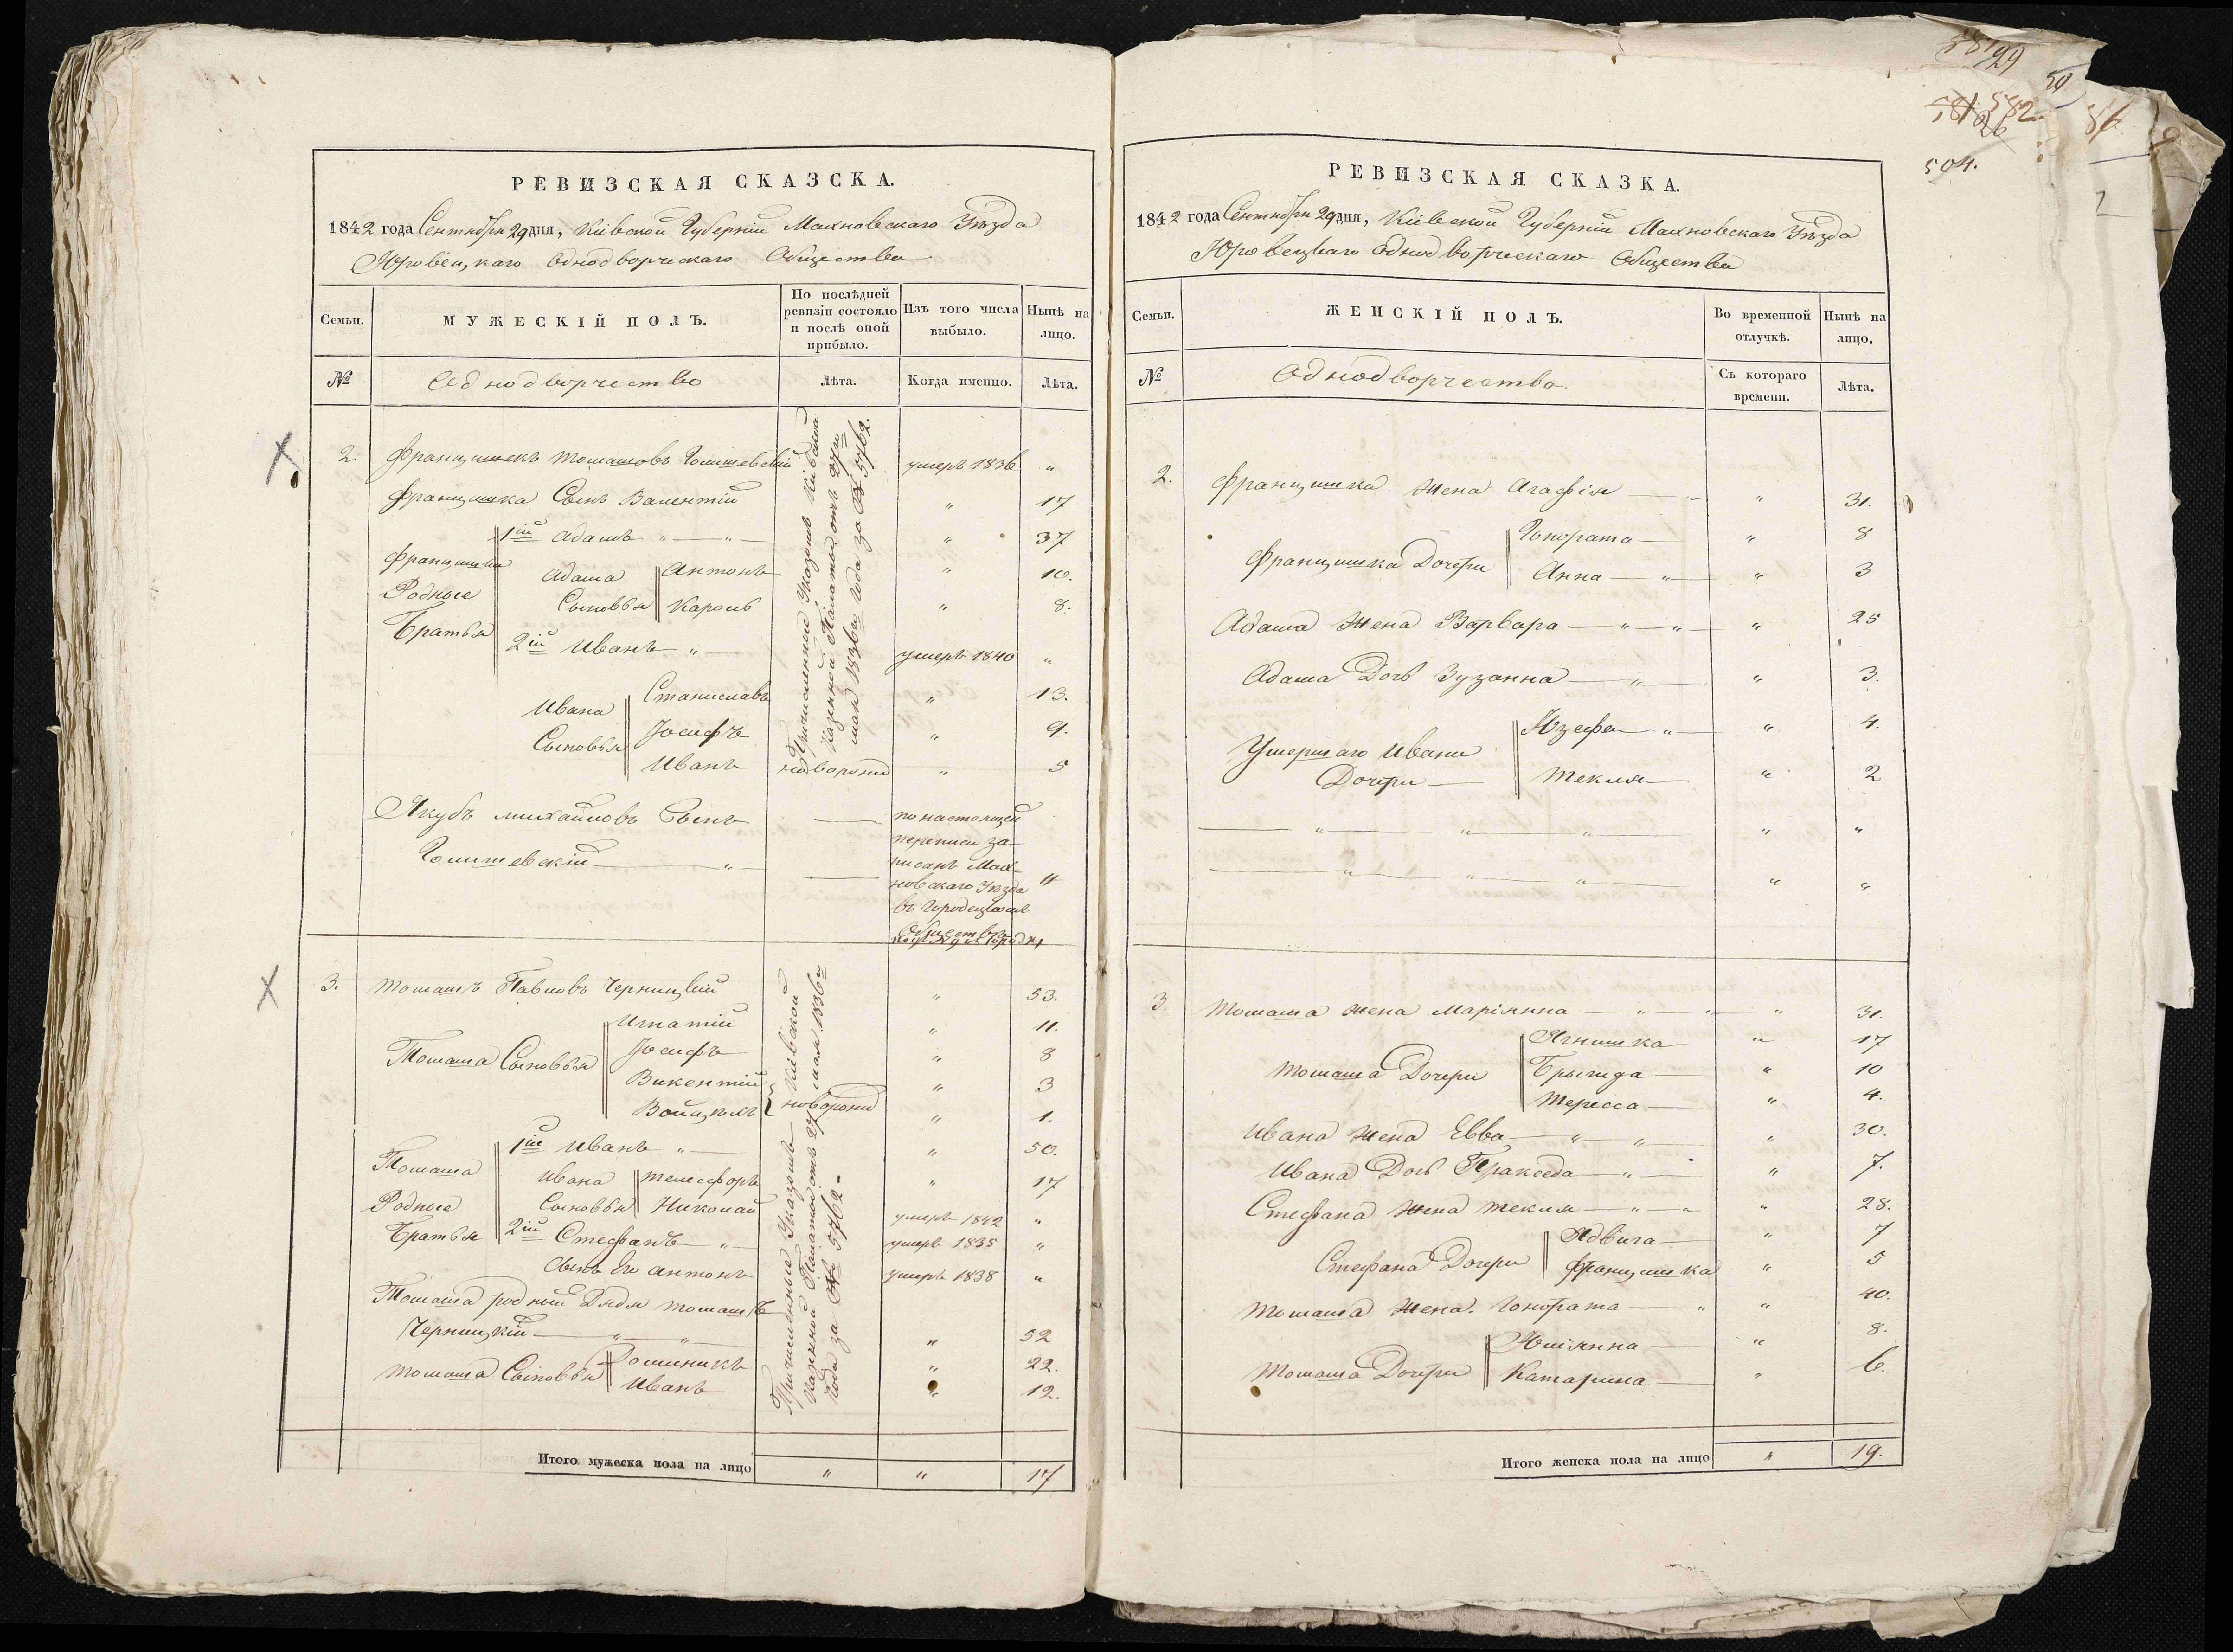 РЕВИЗСКАЯ СКАЗСКА.
1842 года Сентября 29 дня, Кіевской Губерніи Махновскаго Уѣзда
Юровецкаго Однодворческаго Общества
Семьи.
МУЖЕСКІЙ ПОЛЪ.
По послѣдней ревизіи состояло и послѣ оной прибыло.
Изъ того числа выбыло.
Нынѣ на лицо.
№
Однодворчество
Лѣта.
Когда именно.
Лѣта.
Причисленный Указомъ Кіевской
Казенной Палаты отъ 27го
мая 1836го года за № 5762.
2. Францишекъ Томашовъ Голишевскій умеръ 1836 "
Францишка Сынъ Валентій " 17
1ій Адамъ " — " " 37
Францишка Родные Братья
Адама Сыновья
Антонъ " 10.
Кароль " 8.
2ій Иванъ " — умеръ 1840 "
Ивана Сыновья
Станиславъ " 13.
Іосифъ " 9.
Иванъ новорожд " 5
Якубъ михайловъ Сынъ
Голишевскій — " —
по настоящей
переписи за-
писанъ Мах-
новскаго Уѣзда "
въ Городецкомъ
Обществѣ
3. Томашъ Павловъ Черницкій " 53.
Томаша Сыновья
Игнатій " 11.
Іосифъ " 8
Викентій " 3
Войцѣхъ } новорожд " 1.
Причисленные Указомъ Кіевской
Казенной Палаты отъ 27 мая 1836го
года за № 5762 -
Томаша Родные Братья
1ій Иванъ " — " 50.
Ивана Сыновья
телесфоръ " 17
Николай умеръ 1842 "
2ій Стефанъ " — умеръ 1835 "
Сынъ Его Антонъ умеръ 1838 "
Томаша родный Дядя томашъ
Черницкій — " — " — " 52
Томаша Сыновья
Доминикъ " 22.
Иванъ " 12.
Итого мужеска пола на лицо " " 17
504.
РЕВИЗСКАЯ СКАЗКА.
1842 года Сентября 29 дня, Кіевской Губерніи Махновскаго Уѣзда
Юровецкаго Однодворческаго Общества
Семьи.
ЖЕНСКІЙ ПОЛЪ.
Во временной отлучкѣ.
Нынѣ на лицо.
№
Однодворчество.
Съ котораго времени.
Лѣта.
2. Францишка Жена Агафія — " 31.
Францишка Дочери
Гонората — " 8
Анна — " — " 3
Адама Жена Варвара — " — " — " 25
Адама Дочь Зузанна — " — " 3.
Умершаго Ивана Дочери —
Юзефа — " — " 4.
Текля — " 2
— " — " — " — " "
— " — " — " — " "
3. Томаша жена Маріянна — " — " — " 31.
Томаша Дочери
Ягнишка " 17
Брыгида — " 10
Тересса — " 4.
Ивана жена Евва — " — " " 30.
Ивана Дочь Пракседа — " — " 7.
Стефана жена текля — " — " " 28.
Стефана Дочери
Ядвига — " 7
Францишка " 5
Томаша жена. Гонората — " " 40.
Томаша Дочери
Юліянна — " 8.
Катарина — " 6.
Итого женска пола на лицо " 19.